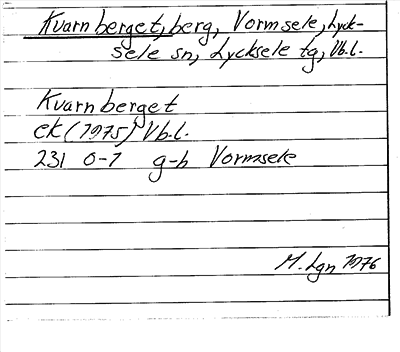 Kvarnberget, berg, Vormsele, Lyck-
sele sn, Lycksele tg, Vb.l.
Kvarnberget
ek (1975) Vb.l.
231 0-1 g-h Vormsele
M. Lgn 1976